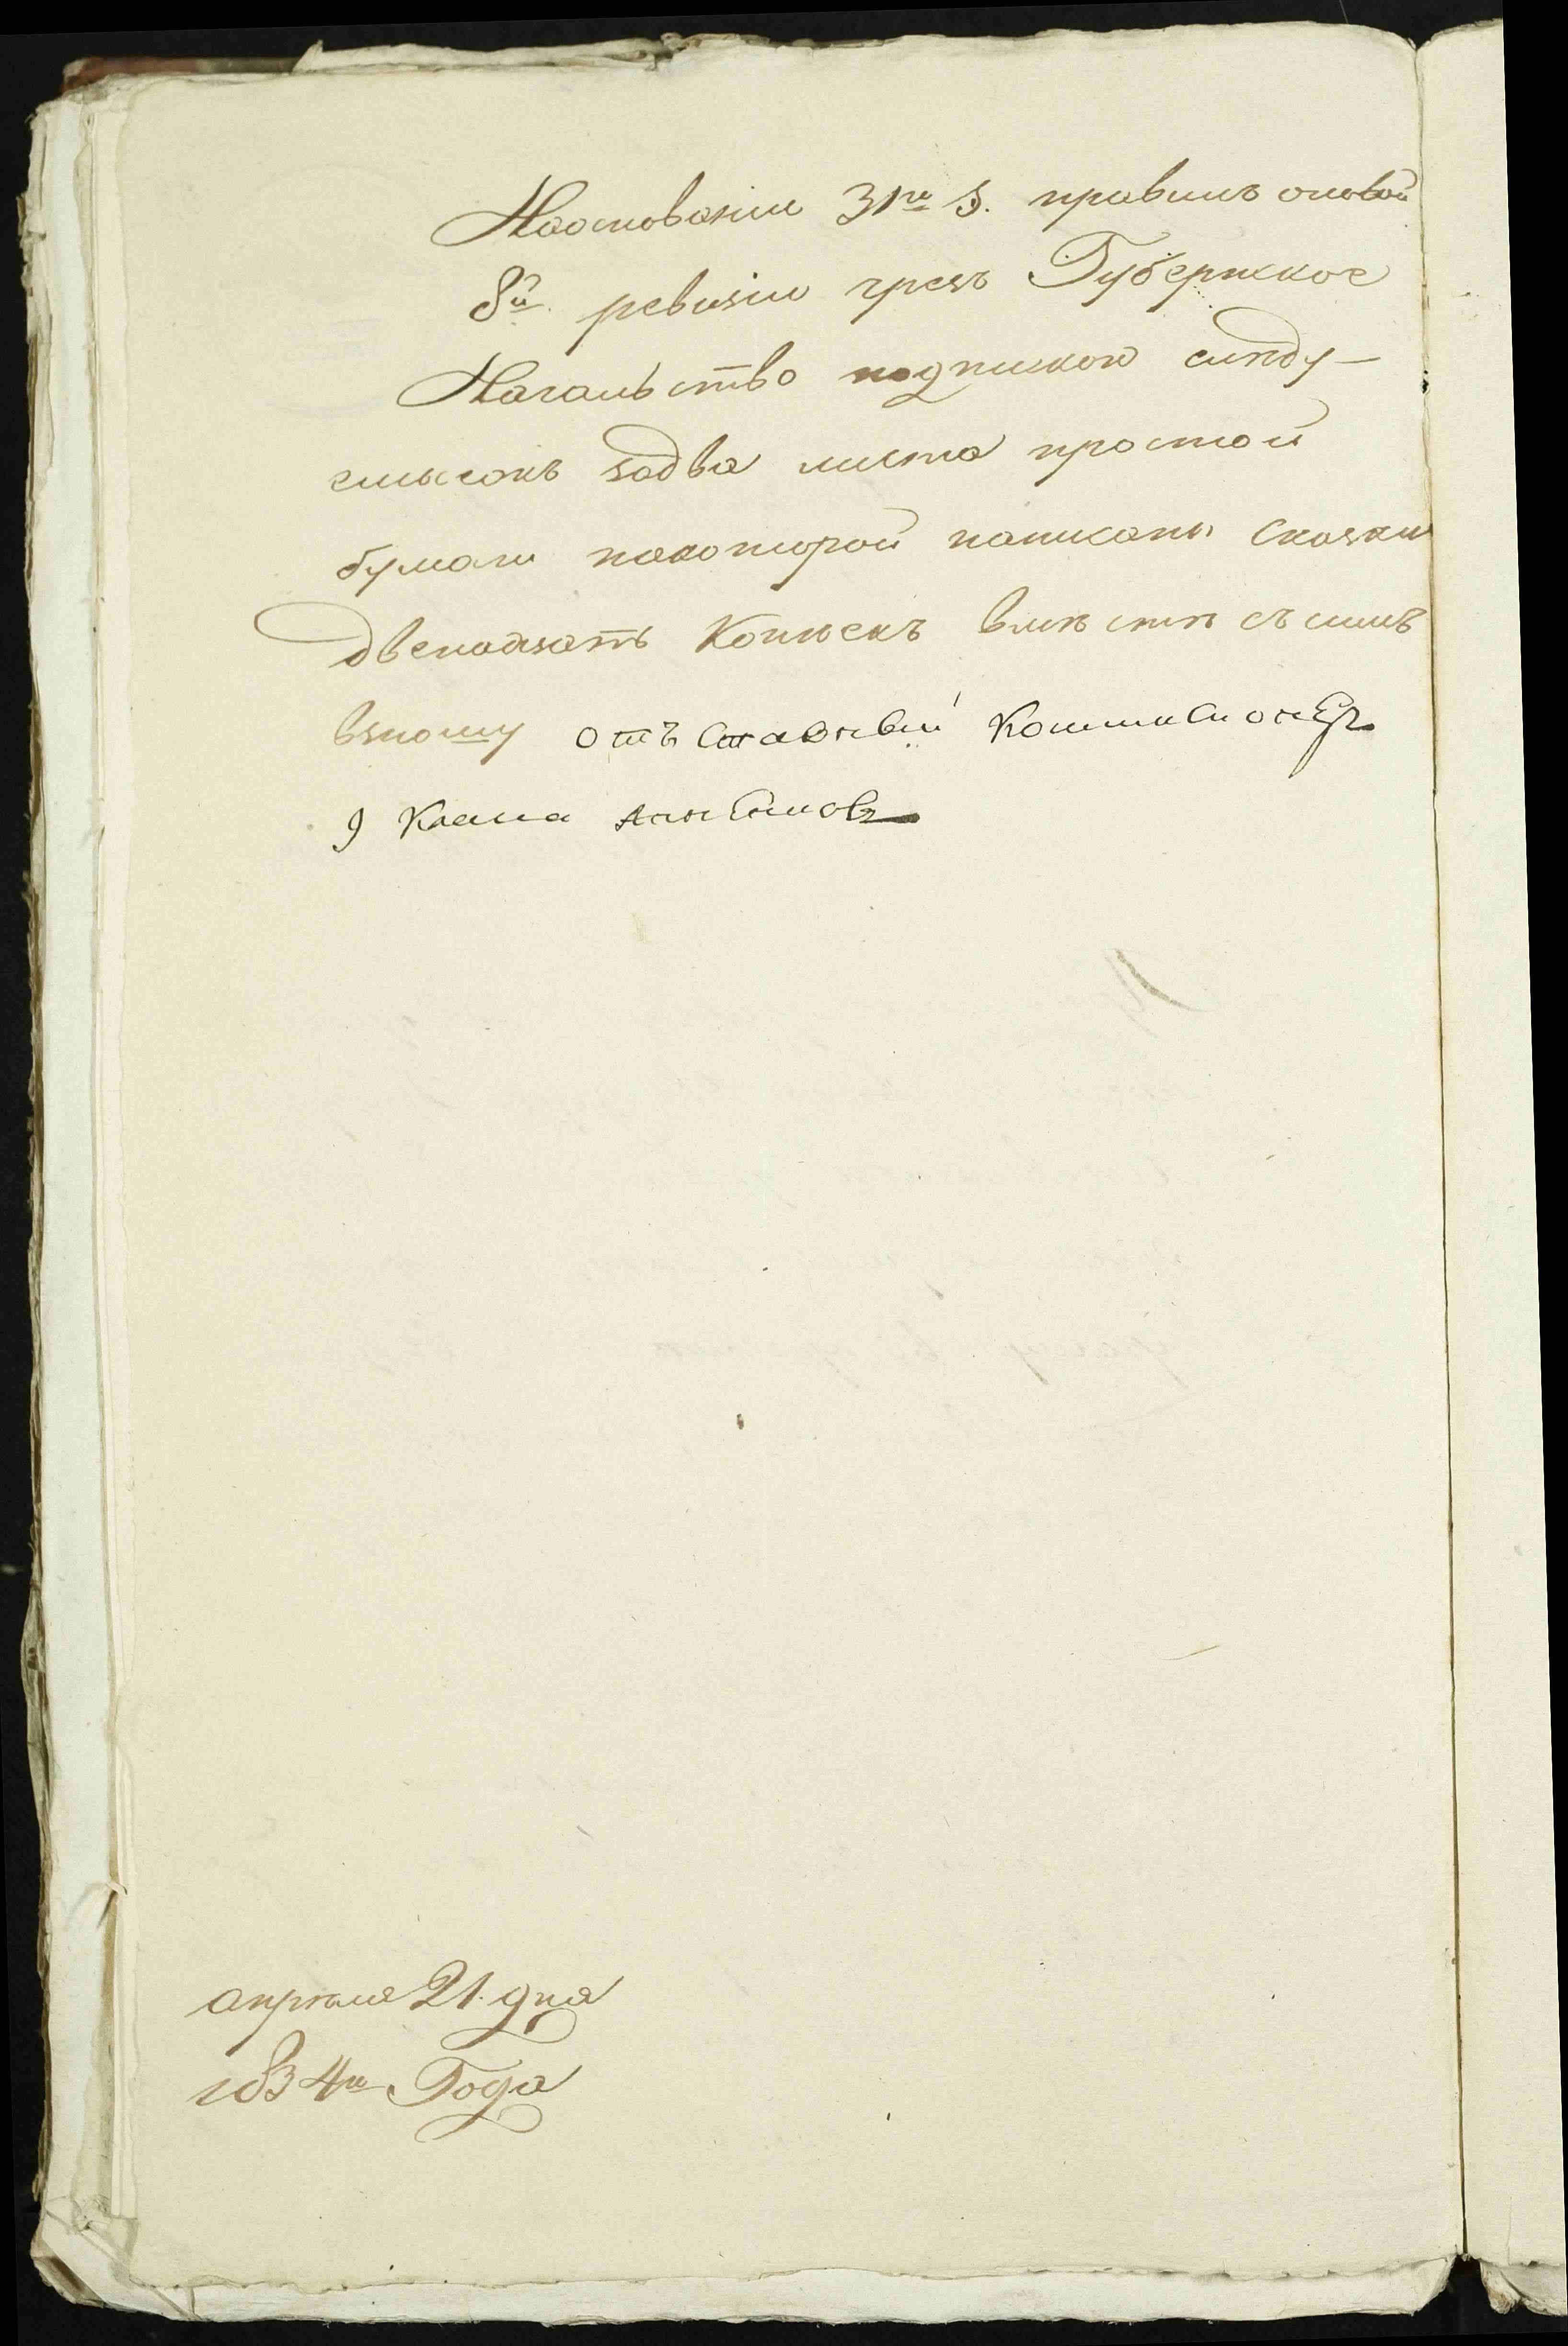 Наоснованіи 31го §. правилъ оновой
8й ревизіи чрезъ Губернское
Начальство подпискою слѣду-
емыхонъ задва листа простой
бумаги накоторой написаны сказки
двенадзать Копѣекъ вмѣстѣ съсимъ
взношу отъставный Коммисионеръ
9 Класа
апрѣля 21. дня
1834го Года